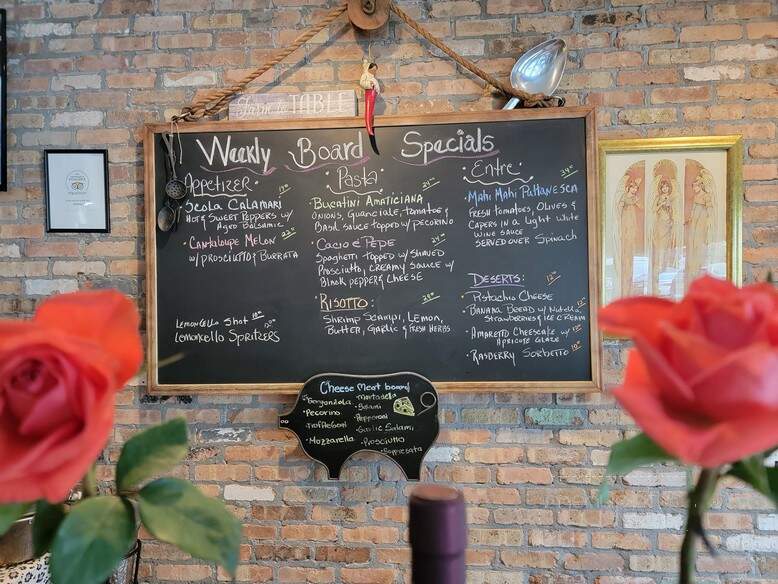 Farm to TABLE
Weekly Board Specials
Appetizer.
Scola Calamari
Hot & Sweet Peppers w/
Aged Balsamic
Cantaloupe Melon
w/ Prosciutto & Burrata
Lemoncello Shot
Lemoncello Spritzers
Pasta
Bucatini Amaticiana
Onions, Guanciale, tomatoes &
Basil Sauce topped w/ pecorino
Cacio & Pepe
Spaghetti topped w/ Shaved
Prosciutto, Creamy Sauce w/
Black pepper & Cheese
Risotto:
Shrimp Scampi, Lemon,
Butter, Garlic & Fresh Herbs
Entre
Mahi Mahi Puttanesca
Fresh Tomatoes, Olives &
Capers in a light white
wine sauce
served over Spinach
Deserts:
Pistachio Cheese
Banana Bread w/ Nutella,
Strawberries & Ice Cream
Amaretto Cheesecake w/
Apricote Glaze
Rasberry Sorbetto
Cheese Meat board
Gorgonzola
Pecorino
Mozzarella
Mortadella
Pepperoni
Garlic Salami
Prosciutto
Sopresata